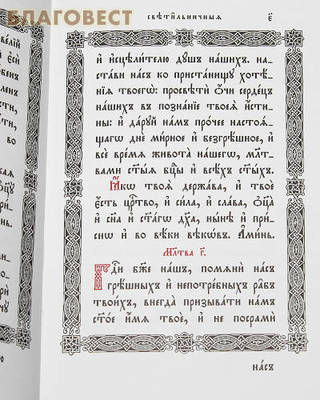 БЛАГОВЕСТ
Свѣти́льничныѧ є҃
и҆ и҆сцѣли́телю дꙋ́шъ на́шихъ. на-
ста́ви на́съ ко приста́нищꙋ хотѣ́-
нїѧ твоегѡ̀: просвѣтѝ ѻ҆́чи серде́цъ
на́шихъ въ позна́нїе твоеѧ̀ и҆́сти-
ны: и҆ да́рꙋй на́мъ про́чее настоѧ́-
щагѡ днѐ ми́рное и҆ безгрѣ́шное, и҆
всѐ вре́мѧ живота̀ на́шегѡ, мл҃тва-
ми ст҃ы́ѧ бц҃ы и҆ всѣ́хъ ст҃ы́хъ.
Ꙗ҆́кѡ твоѧ̀ держа́ва, и҆ твоѐ
є҆́сть црⷭ҇тво, и҆ си́ла, и҆ сла́ва, ѻ҆ц҃а̀
и҆ сн҃а и҆ ст҃а́гѡ дх҃а, ны́нѣ и҆ при́-
снѡ и҆ во вѣ́ки вѣкѡ́въ. А҆ми́нь.
Мл҃тва г҃.
Гдⷭ҇и бж҃е на́шъ, помѧнѝ на́съ
грѣ́шныхъ и҆ непотре́бныхъ ра̑бъ
твои́хъ, внегда̀ призыва́ти на́мъ
ст҃о́е и҆́мѧ твоѐ, и҆ не посрамѝ
на́съ